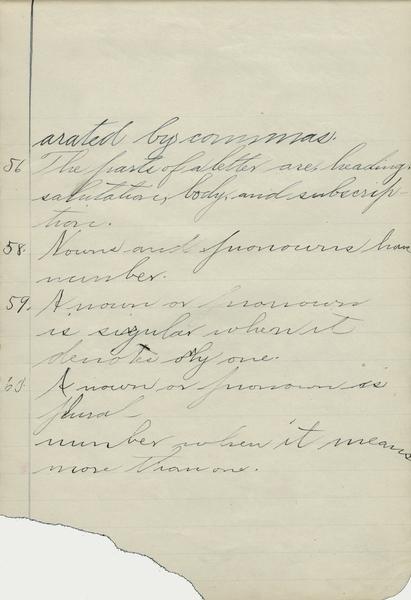 arated by commas.
56 The parts of a letter are, heading,
salutation, body, and subscrip-
tion.
58. Nouns and pronouns have
number.
59. A noun or pronoun
is sigular when it
denotes only one.
60. A noun or pronoun is
plural
number when it means
more than one.